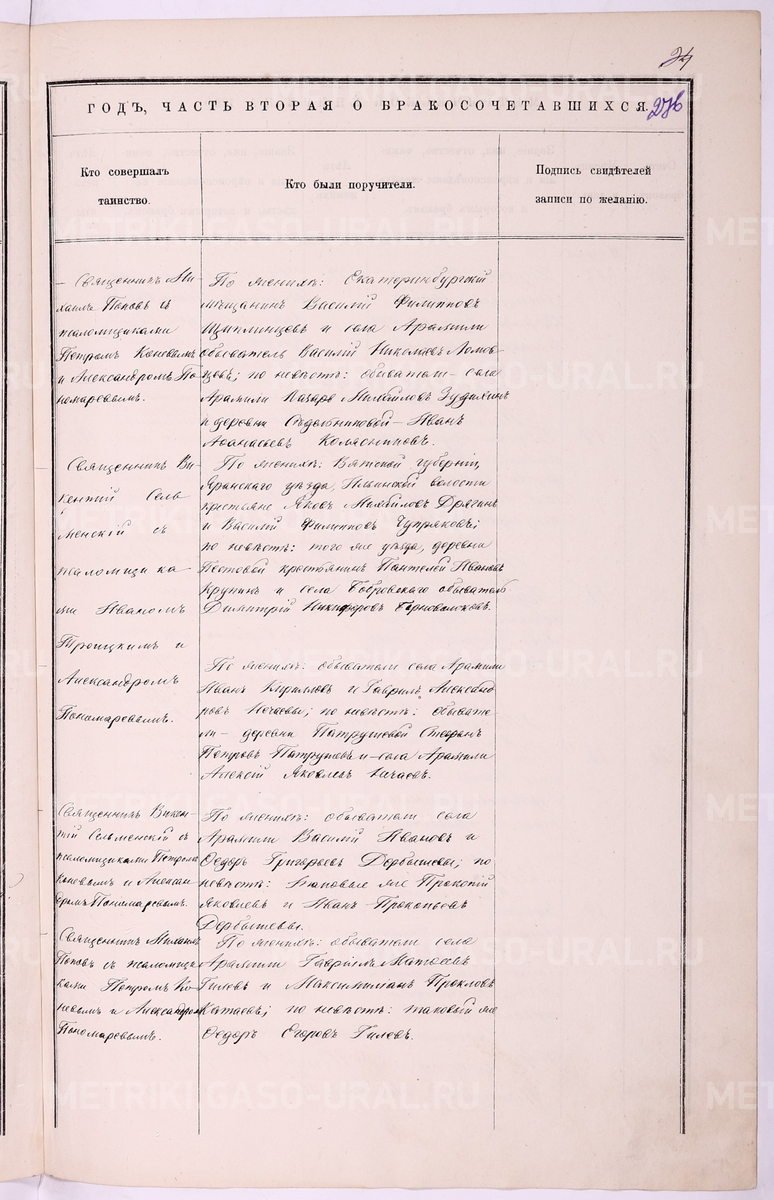 276
ГОДЪ, ЧАСТЬ ВТОРАЯ О БРАКОСОЧЕТАВШИХСЯ.
Кто совершалъ
таинство.
Кто были поручители.
Подпись свидѣтелей
записи по желанію.
Священникъ Ми-
хаилъ Поповъ съ
псаломщиками
Петромъ Коневымъ
и Александромъ По-
номаревымъ.
По женихѣ: Екатеринбургскій
мѣщанинъ Василій Филипповъ
и села Арамили
обыватель Василій Николаевъ
по невѣстѣ: обыватели – села
Арамили Назаръ Михайловъ
и деревни – Иванъ
Аѳанасьевъ Колясниковъ.
Священникъ Ви-
кентій Сель-
менскій съ
псаломщика-
ми Иваномъ
Троицкимъ и
Александромъ
Пономаревымъ.
По женихѣ: Вятской губерніи,
Яранскаго уѣзда, Ильинской волости
крестьяне Яковъ Михайловъ Дрягинъ
и Василій Филипповъ
по невѣстѣ: того же уѣзда, деревни
крестьянинъ Пантелей Ивановъ
Крупинъ и села Бобровскаго обыватель
Димитрій Никифоровъ
По женихѣ: обыватели села Арамили
Иванъ Кирилловъ и Гавріилъ Александ-
ровъ Нечаевы; по невѣстѣ: обывате-
ли – деревни Патрушевой Стефанъ
Петровъ Патрушевъ и – села Арамили
Алексій Яковлевъ
Священникъ Викен-
тій Сельменскій съ
псаломщиками Петромъ
Коневымъ и Алексан-
дромъ Пономаревымъ.
По женихѣ: обыватели села
Арамили Василій Ивановъ и
Ѳедоръ Григорьевъ Дербышевы; по
невѣстѣ: таковые же Прокопій
Яковлевъ и Иванъ Прокопьевъ
Дербышевы.
Священникъ Михаилъ
Поповъ съ псаломщи-
ками Петромъ Ко-
невымъ и Александромъ
Пономаревымъ.
По женихѣ: обыватели села
Арамили Гавріилъ Матѳеевъ
Гилевъ и Максимиліанъ Проклов
Катаевъ; по невѣстѣ: таковый же
Ѳедоръ Егоровъ Гилевъ.
METRIKI.GASO-URAL.RU